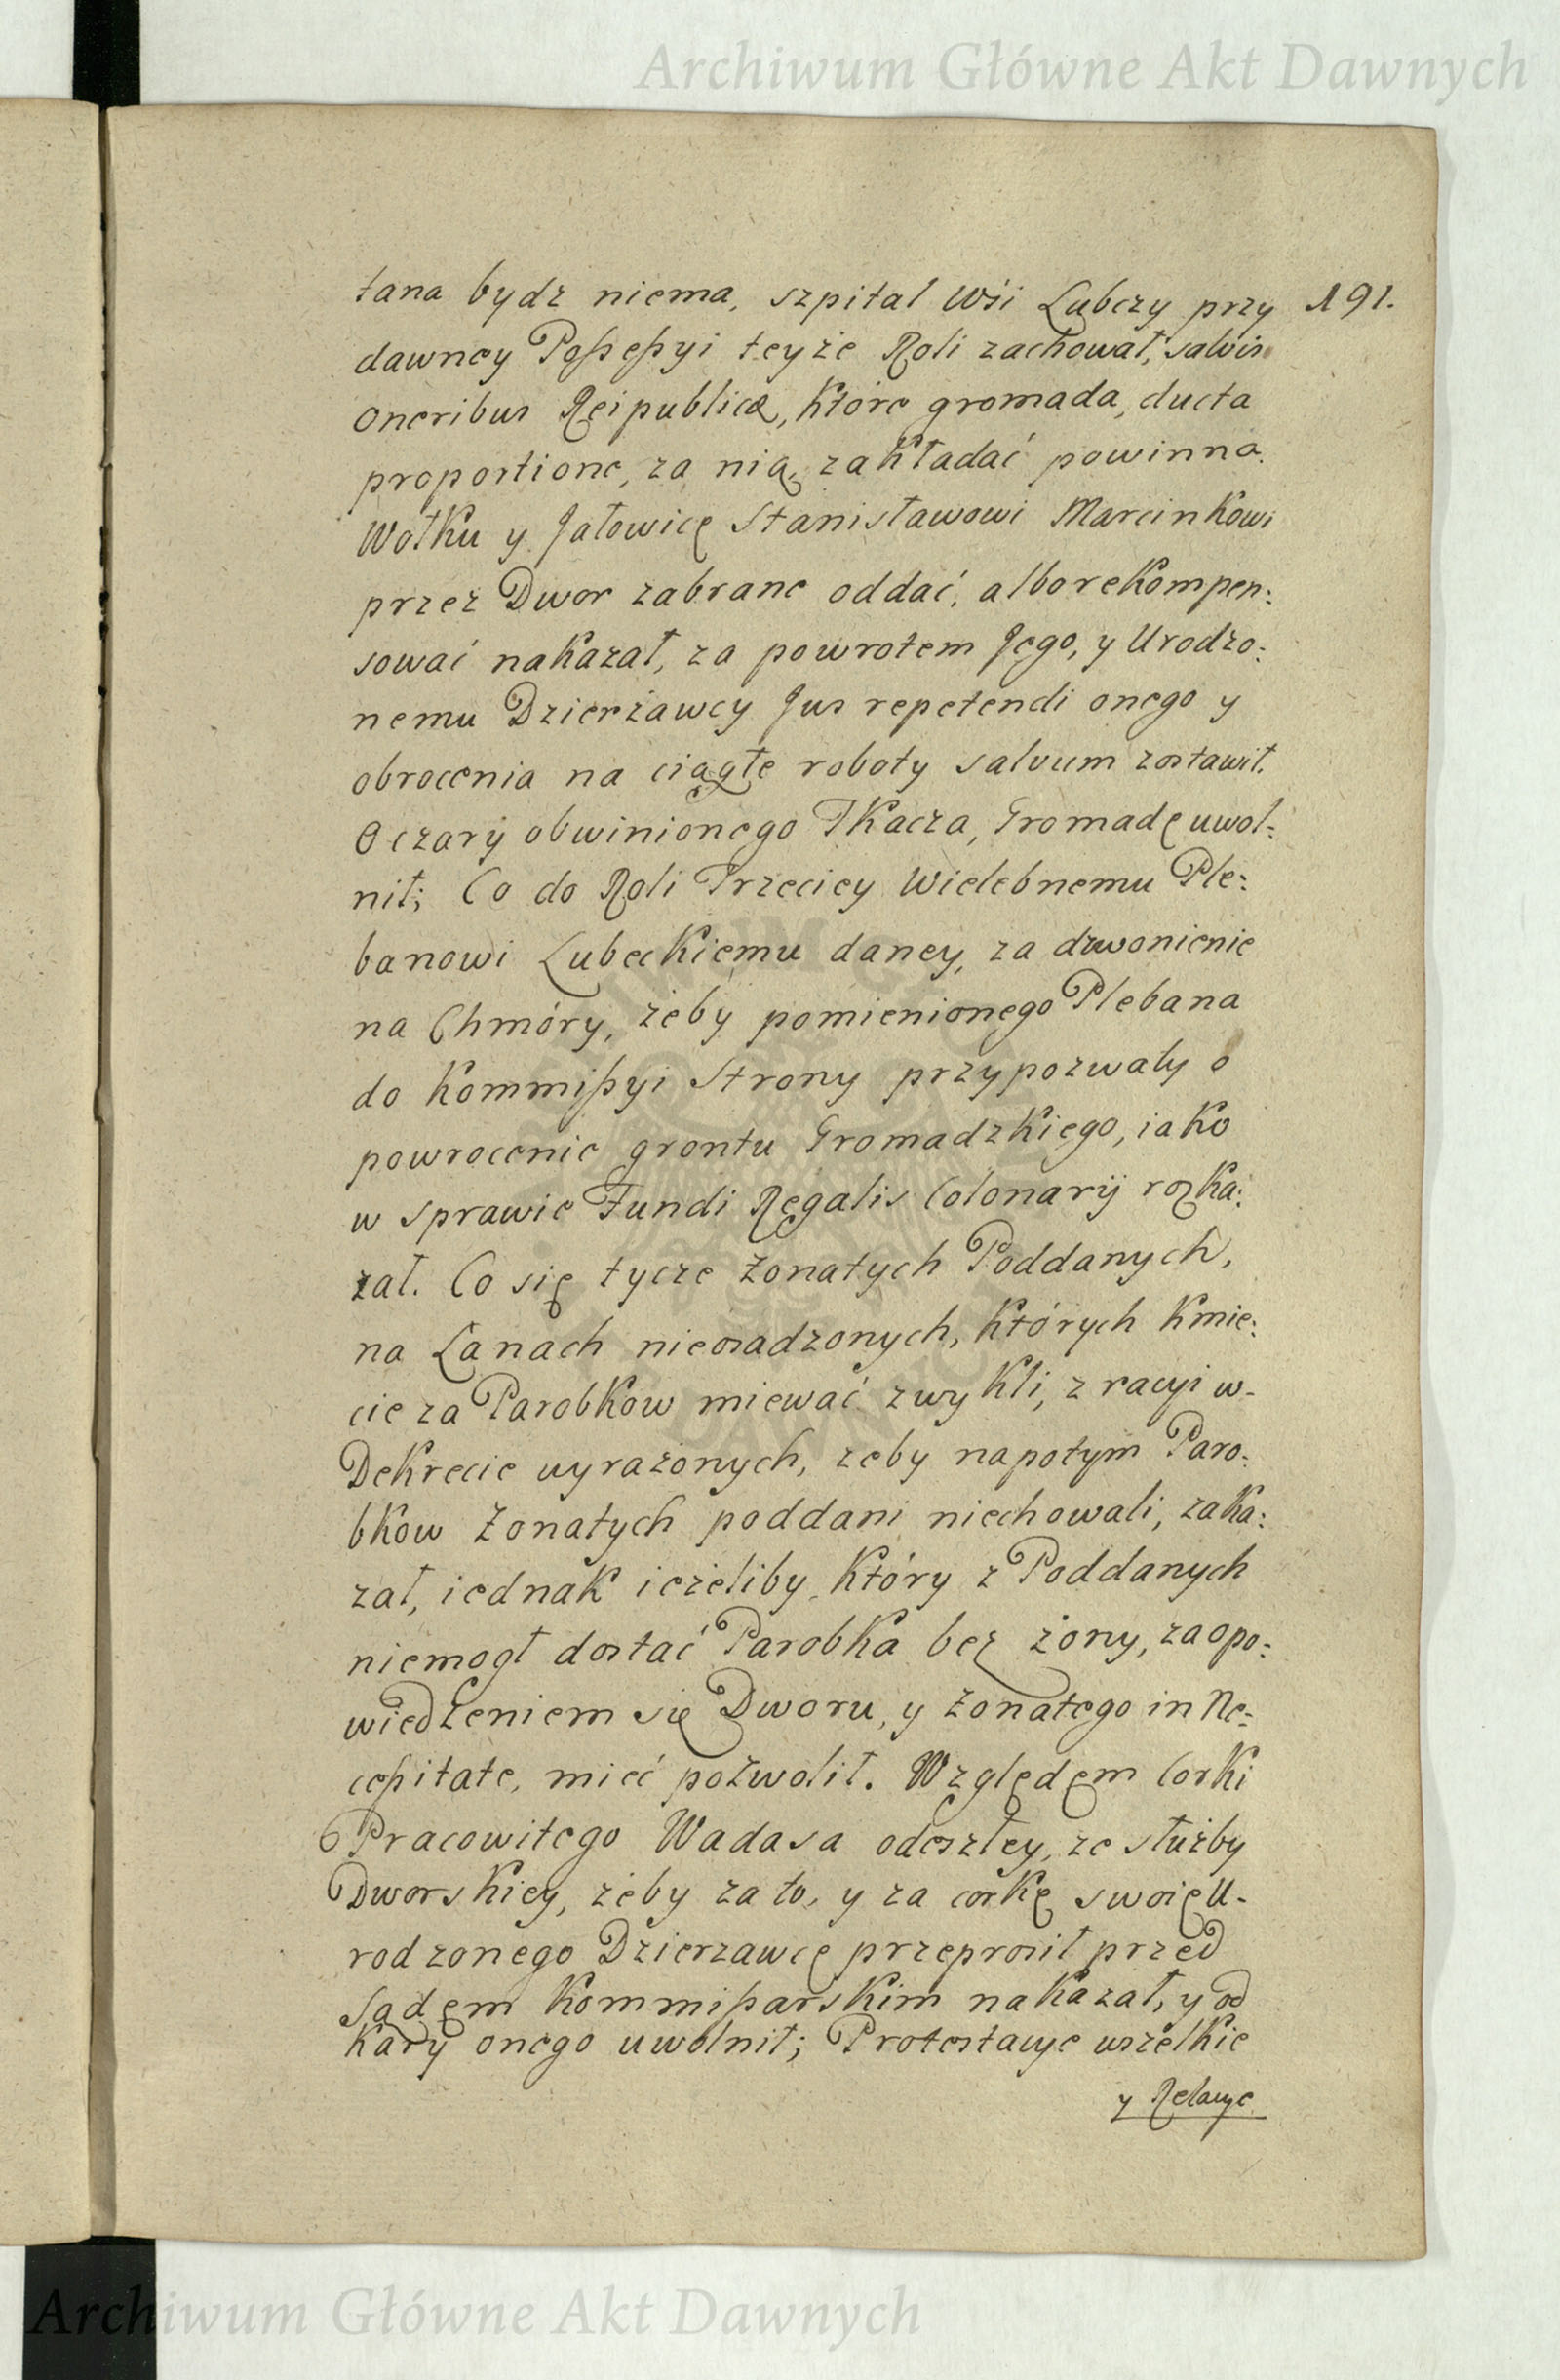 Archiwum Główne Akt Dawnych
tana bydz niema, szpital Wśi Lubczy przy 191.
dawney Poßeßyi teyże Roli zachował, salvis
oneribus Reipublicæ, które gromada, ducta
proportione, za nią, zakładać powinna.
Wołku y Jałowicę Stanisławowi Marcinkowi
przez Dwor zabrane oddać, albo rekompen:
sować nakazał, za powrotem Jego, y Urodzo:
nemu Dzierżawcy Jus repetendi onego y
obrocenia na ciągłe roboty salvum zostawił.
O czary obwinionego Tkacza, Gromadę uwol:
nił; Co do Roli Trzeciey Wielebnemu Ple:
banowi Lubeckiemu daney, za dzwonienie
na Chmóry, żeby pomienionego Plebana
do Kommißyi Strony przypozwały o
powrocenie grontu Gromadzkiego, iako
w sprawie Fundi Regalis Colonarij rozka:
zał. Co się tycze żonatych Poddanych,
na Łanach nieosadzonych, których Kmie:
cie za Parobkow miewać zwykli, z racyi w-
Dekrecie wyrażonych, żeby napotym Paro:
bkow Żonatych poddani niechowali, zaka:
zał, iednak ieżeliby, który z Poddanych
niemogł dostać Parobka bez żony, za opo:
wiedzeniem się Dworu, y żonatego in Ne:
ceßitate, mieć pozwolił. Względem Corki
Pracowitego Wadasa odeszłey, ze służby
Dworskiey, żeby za to, y za corkę swoię U-
rodzonego Dzierzawcę przeprosił przed
Sądem Kommißarskim nakazał, y od
Kary onego uwolnił; Protestacye wszelkie
y Relacye
Archiwum Główne Akt Dawnych